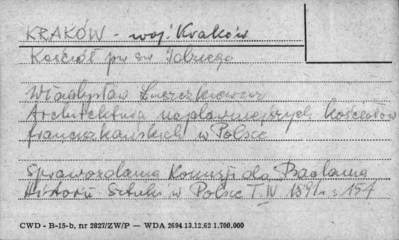 KRAKÓW - woj. Kraków
Kościół pw św. Idziego
Władysław Łuszczkiewicz
Architektura najdawniejszych kościołów
franciszkańskich w Polsce
Sprawozdania Komisji dla Badania
Historii Sztuki w Polsce T. IV 1891 s. 154
CWD - B-15-b, nr 2827/ZW/P — WDA 2694 13.12.62 1.700.000